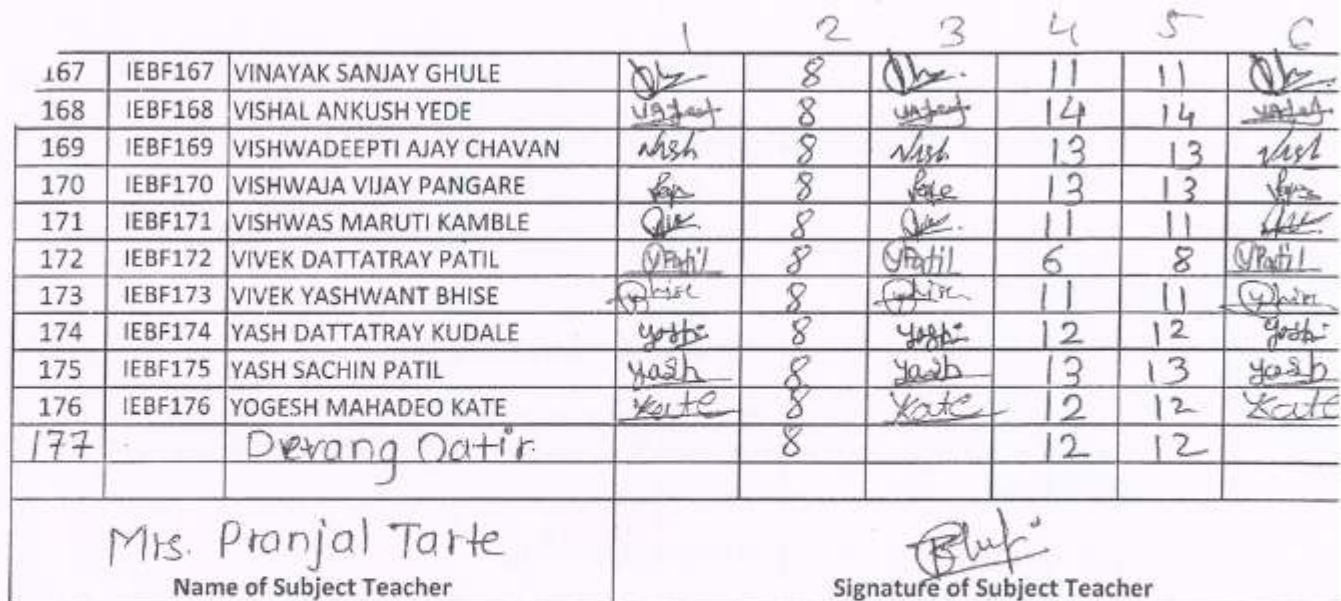 1 2 3 4 5 6
167 IEBF167 VINAYAK SANJAY GHULE 8 11 11
168 IEBF168 VISHAL ANKUSH YEDE 8 14 14
169 IEBF169 VISHWADEEPTI AJAY CHAVAN 8 13 13
170 IEBF170 VISHWAJA VIJAY PANGARE 8 13 13
171 IEBF171 VISHWAS MARUTI KAMBLE 8 11 11
172 IEBF172 VIVEK DATTATRAY PATIL VPatil 8 VPatil 6 8 VPatil
173 IEBF173 VIVEK YASHWANT BHISE 8 11 11
174 IEBF174 YASH DATTATRAY KUDALE 8 12 12
175 IEBF175 YASH SACHIN PATIL Yash 8 Yash 13 13 Yash
176 IEBF176 YOGESH MAHADEO KATE Kate 8 Kate 12 12 Kate
177 Devang Datir 8 12 12
Mrs. Pranjal Tarte
Name of Subject Teacher Signature of Subject Teacher